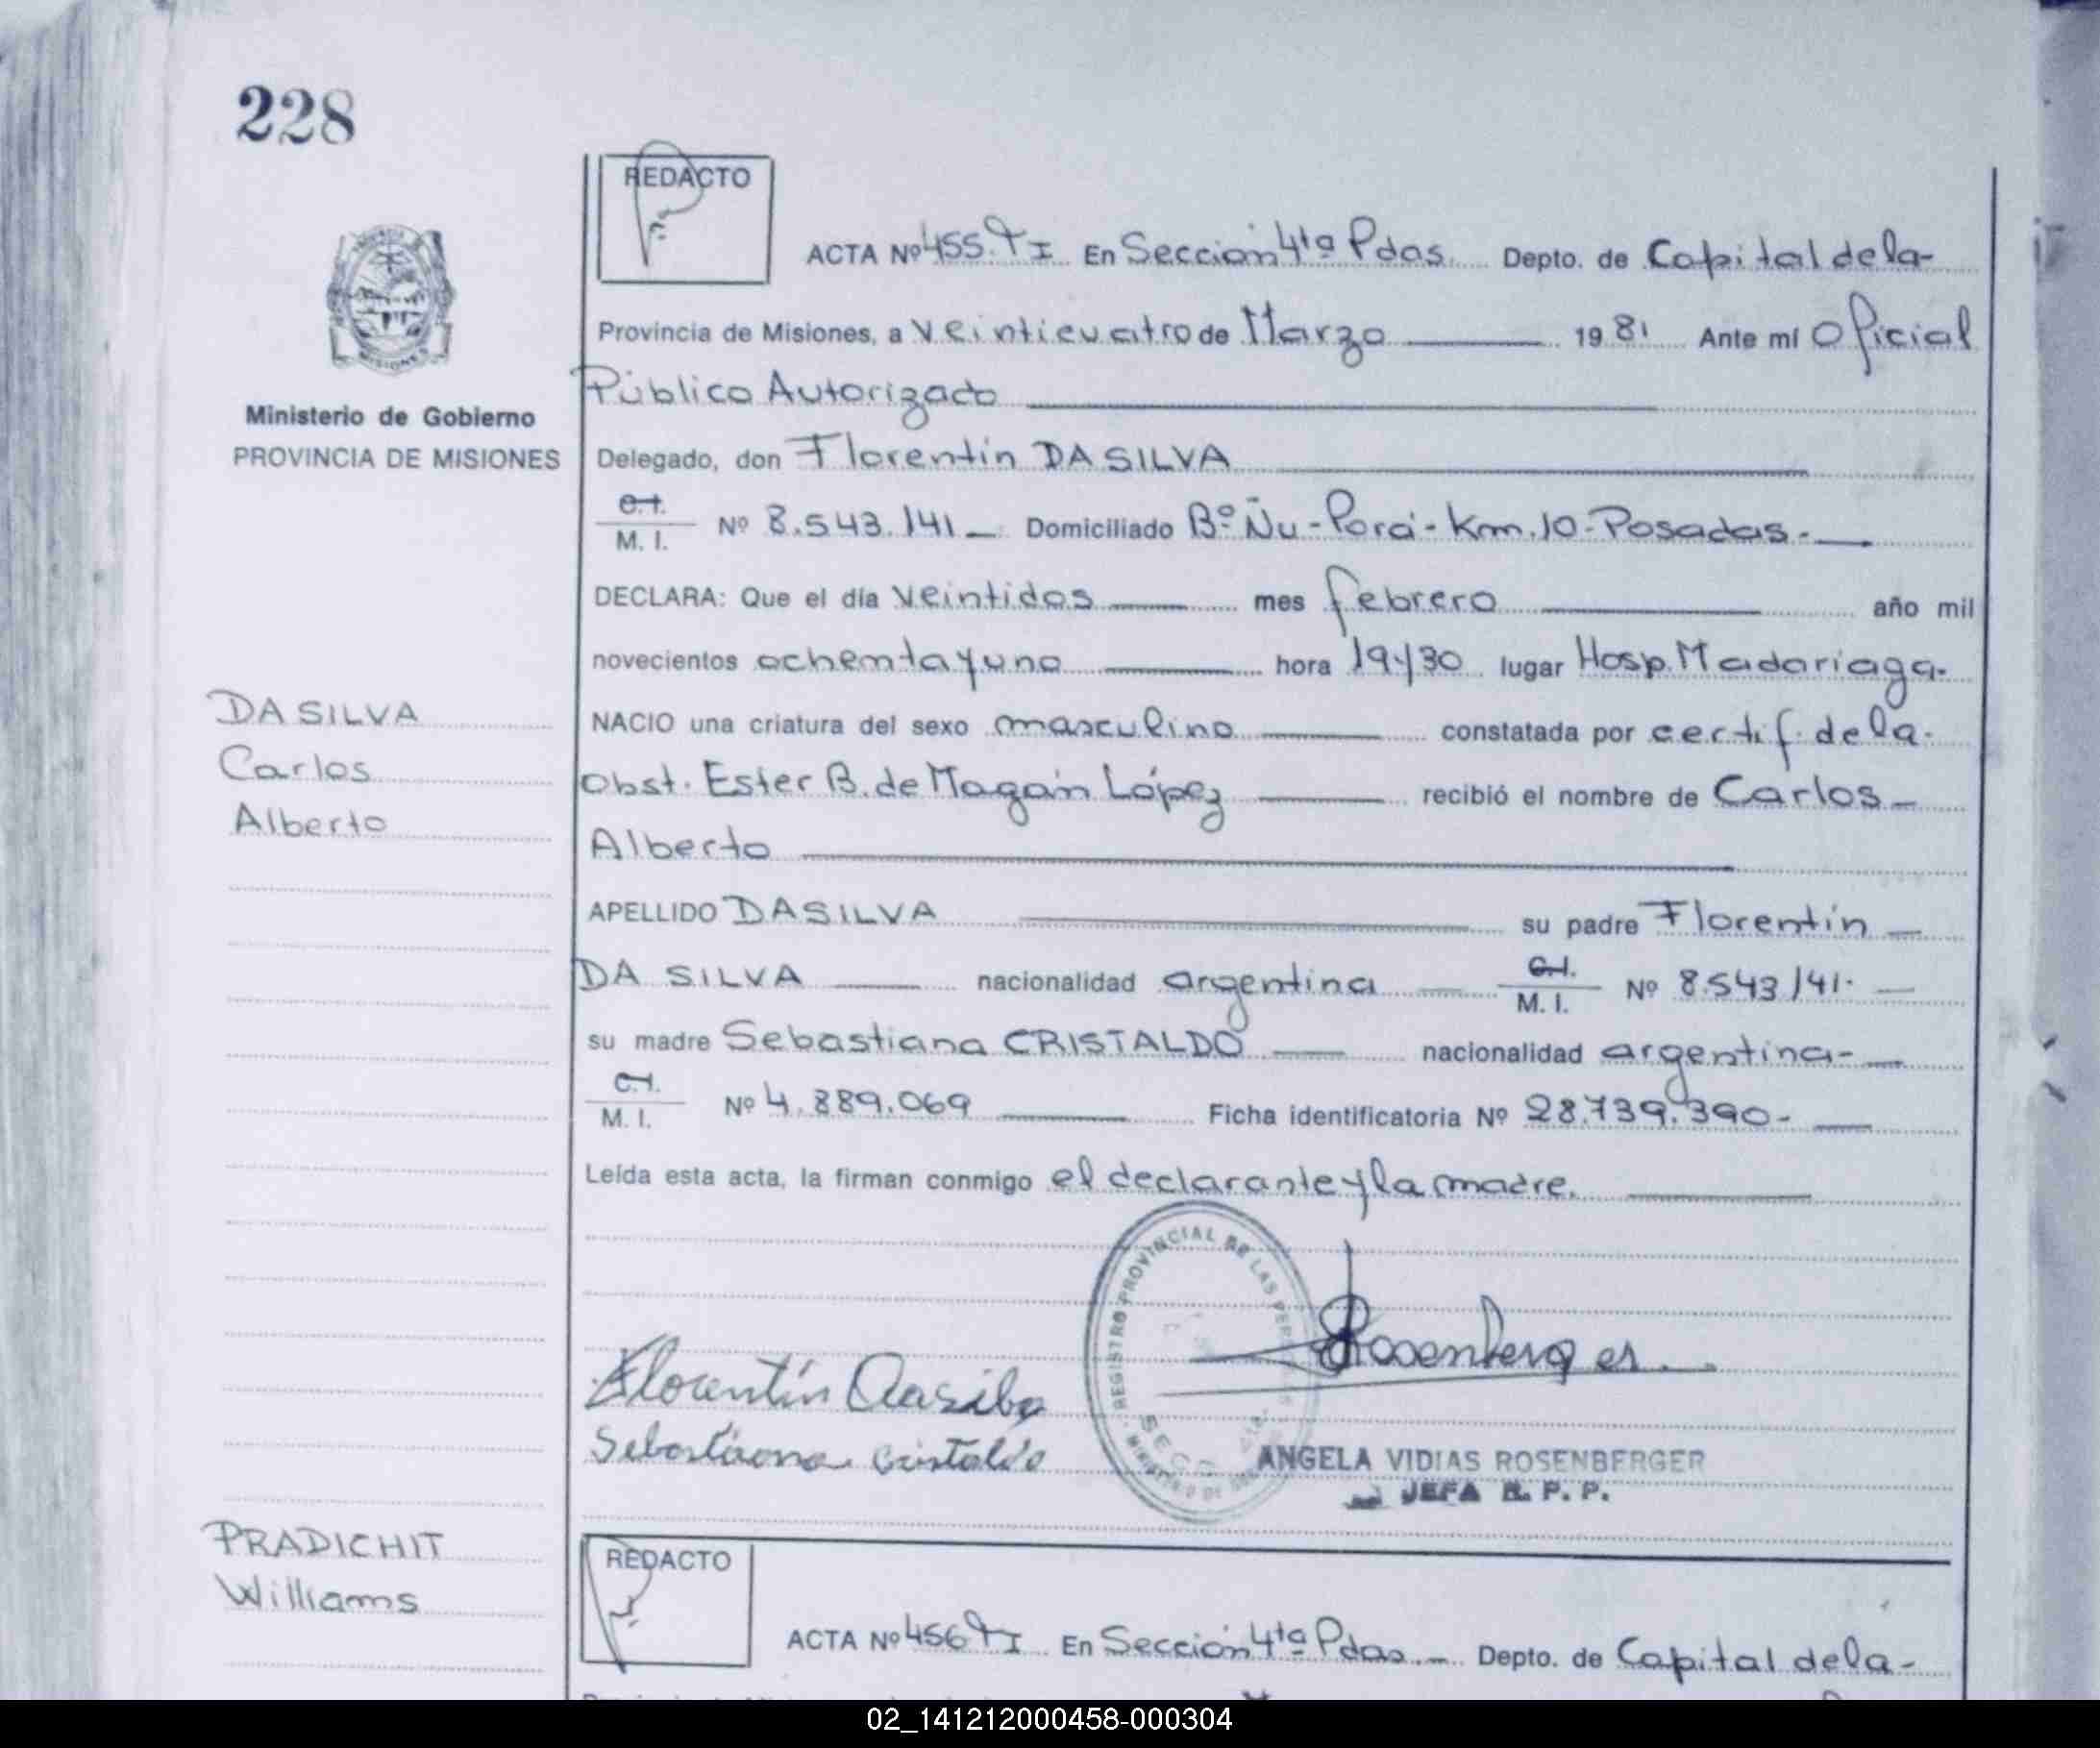 228
REDACTO
ACTA Nº 455. TI En Sección 4ta Pdas. Depto. de Capital de la-
Provincia de Misiones, a veinticuatro de Marzo 1981 Ante mí Oficial
Público Autorizado
Ministerio de Gobierno
PROVINCIA DE MISIONES
Delegado, don Florentín DA SILVA
C.I.
M. I. Nº 8.543.141 Domiciliado Bº Ñu-Porá-Km.10-Posadas.-
DECLARA: Que el día veintidos mes febrero año mil
novecientos ochenta y uno hora 19y30 lugar Hosp. Madariaga.
DA SILVA
Carlos
Alberto
NACIO una criatura del sexo masculino constatada por certif. de la.
Obst. Ester B. de Magán López recibió el nombre de Carlos
Alberto
APELLIDO DA SILVA su padre Florentín
DA SILVA nacionalidad argentina C.I. M. I. Nº 8.543.141.
su madre Sebastiana CRISTALDO nacionalidad argentina-
C.I.
M. I. Nº 4.889.069 Ficha identificatoria Nº 28.739.390-
Leída esta acta, la firman conmigo el declarante y la madre.
REGISTRO PROVINCIAL DE LAS
Florentín Dasilva
Rosenberger
Sebastiana Cristaldo
ANGELA VIDIAS ROSENBERGER
JEFA R. P. P.
PRADICHIT
Williams
REDACTO
ACTA Nº 456 TI En Sección 4ta Pdas. Depto. de Capital de la-
02_141212000458-000304